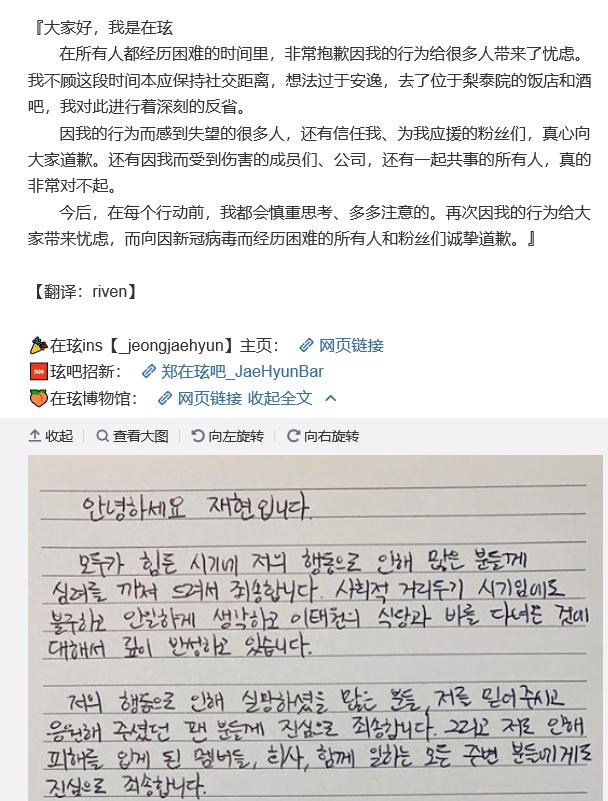 『大家好，我是在玹
在所有人都经历困难的时间里，非常抱歉因我的行为给很多人带来了忧虑。
我不顾这段时间本应保持社交距离，想法过于安逸，去了位于梨泰院的饭店和酒
吧，我对此进行着深刻的反省。
因我的行为而感到失望的很多人，还有信任我、为我应援的粉丝们，真心向
大家道歉。还有因我而受到伤害的成员们、公司，还有一起共事的所有人，真的
非常对不起。
今后，在每个行动前，我都会慎重思考、多多注意的。再次因我的行为给大
家带来忧虑，而向因新冠病毒而经历困难的所有人和粉丝们诚挚道歉。』
【翻译：riven】
在玹ins【_jeongjaehyun】主页： 网页链接
SOS 玹吧招新： 郑在玹吧_JaeHyunBar
在玹博物馆： 网页链接 收起全文
收起 查看大图 向左旋转 向右旋转
안녕하세요 재현입니다.
모두가 힘든 시기에 저의 행동으로 인해 많은 분들께
심려를 끼쳐 드려서 죄송합니다. 사회적 거리두기 시기임에도
불구하고 안일하게 생각하고 이태원의 식당과 바를 다녀온 것에
대해서 깊이 반성하고 있습니다.
저의 행동으로 인해 실망하셨을 많은 분들, 저를 믿어주시고
응원해 주셨던 팬 분들께 진심으로 죄송합니다. 그리고 저로 인해
피해를 입게 된 멤버들, 회사, 함께 일하는 모든 주변 분들에게도
진심으로 죄송합니다.